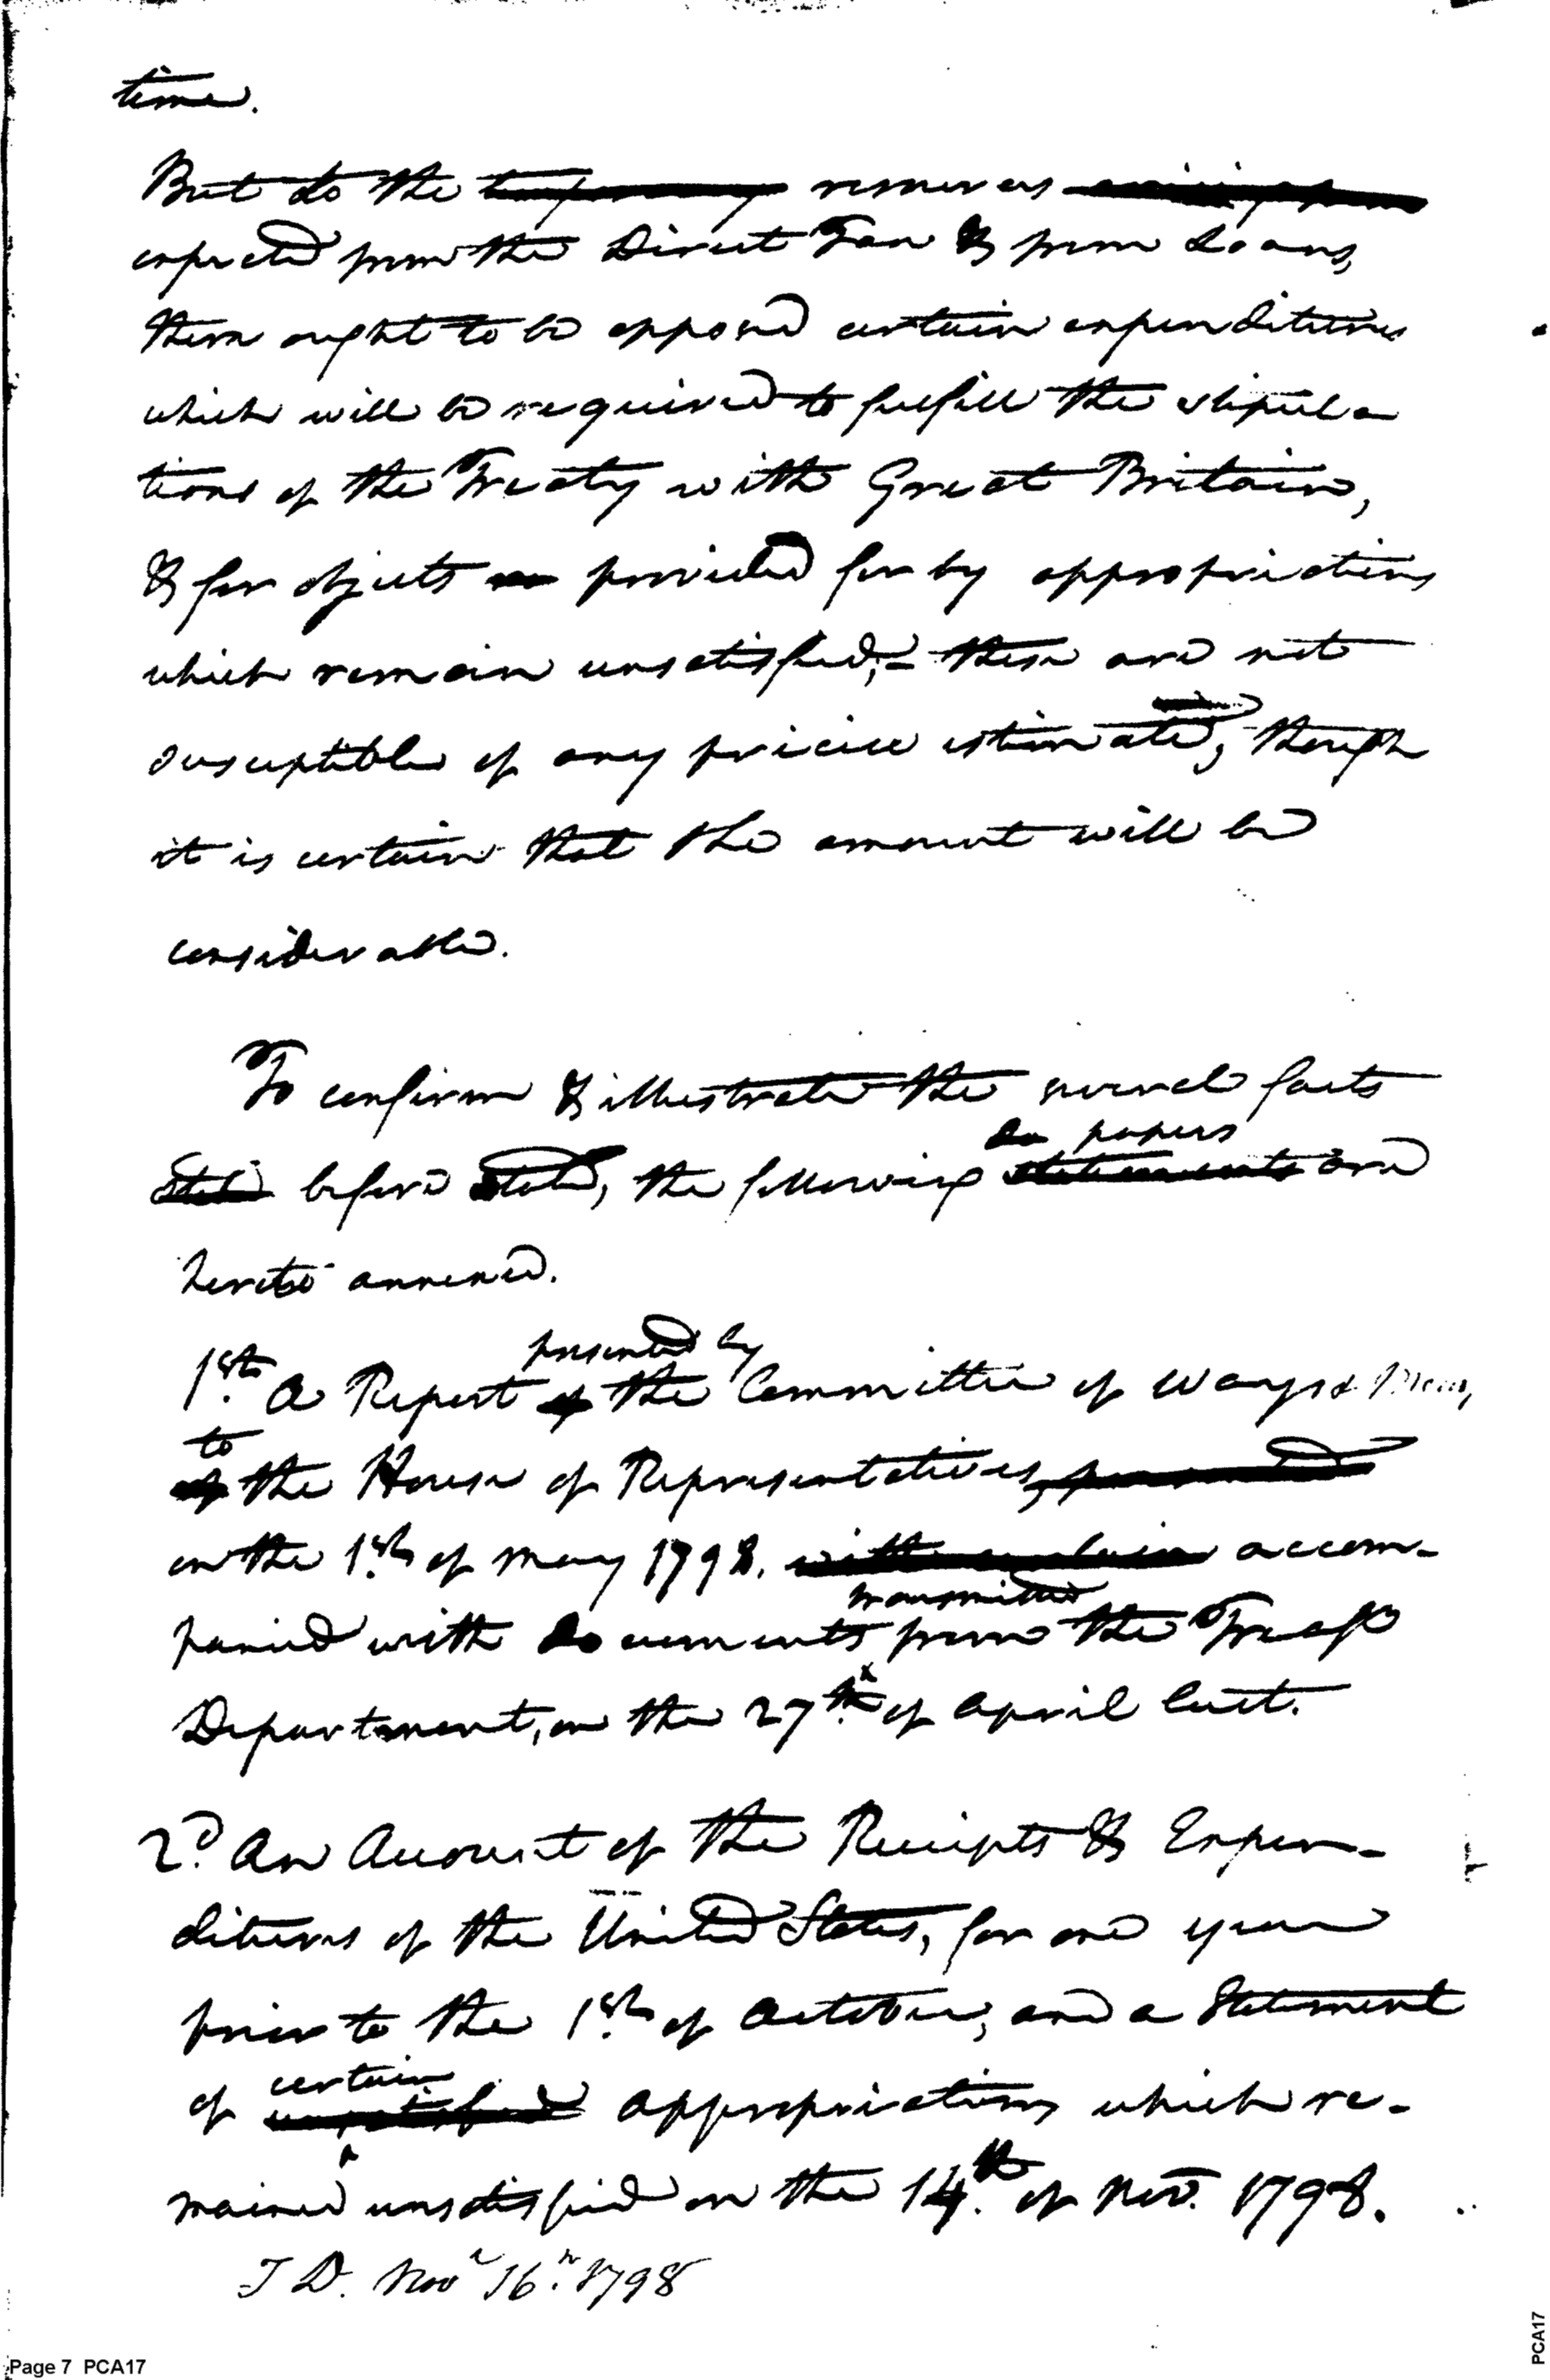 time.
But to the temporary resources arising from
expected from the Direct Tax & from Loans,
there ought to be opposed certain expenditures
which will be required to fulfill the stipula
tions of the Treaty with Great Britain,
& for objects provided for by appropriations
which remain unsatisfied;- these are not
susceptible of any precise estimate, though
it is certain that the amount will be
considerable.
To confirm & illustrate the several facts
papers
stated before stated, the following statements are
hereto annexed.
presented by
1st. A Report of the Committee of Ways & Means,
to
of the House of Representatives, presented
on the 1st. of May 1798. with certain accom-
transmitted
panied with documents from the Treasy
Department, on the 27th. of April last.
2d. An Account of the Receipts & Expen-
ditures of the United States, for one year
prior to the 1st. of October, and a Statement
certain
of unsatisfied appropriations which re-
mained unsatisfied on the 14th. of Nov. 1798.
T D. Novr 16th. 1798
Page 7 PCA17
PCA17